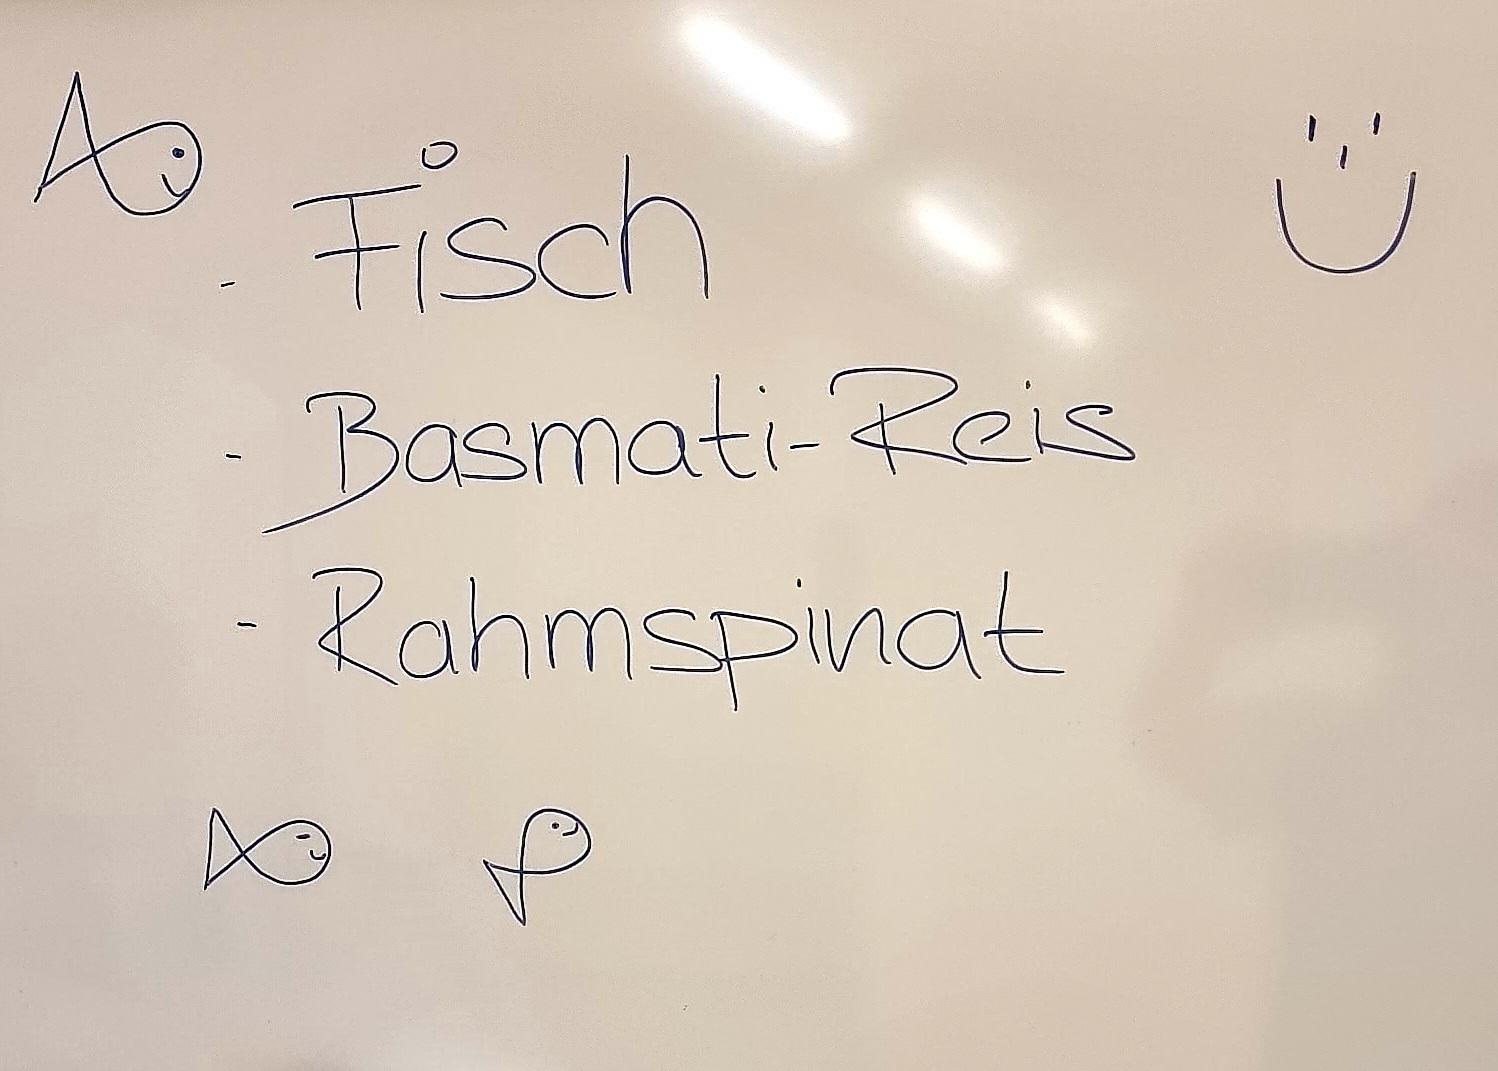 - Fisch
- Basmati-Reis
- Rahmspinat